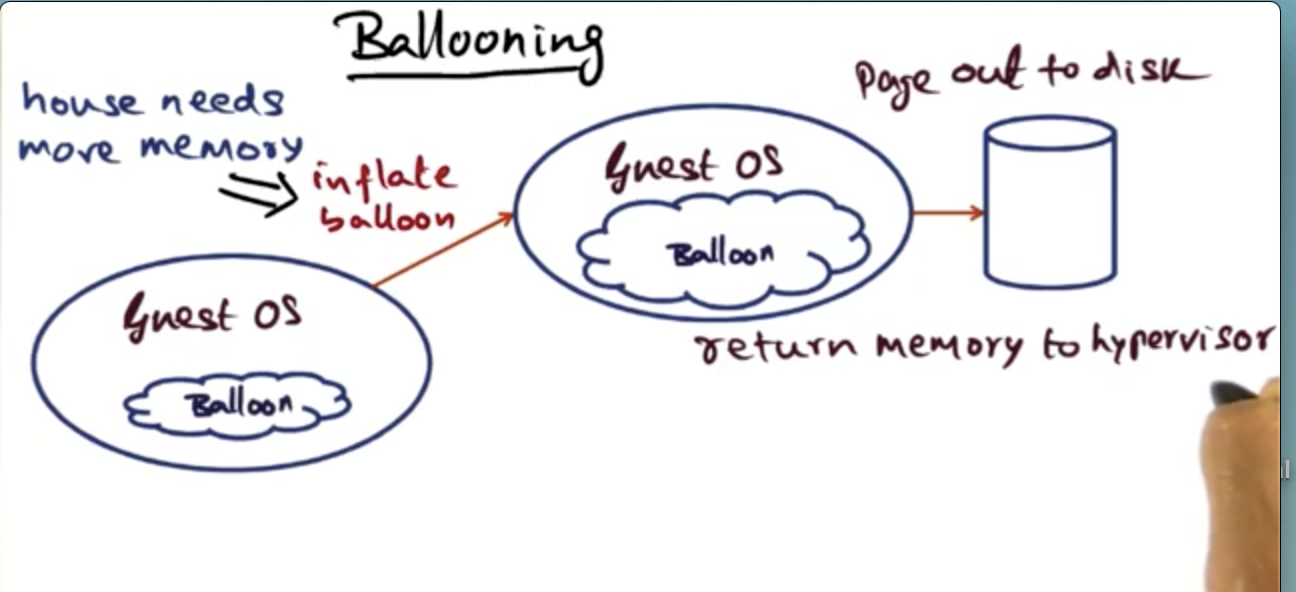 Ballooning
house needs
more memory
inflate
balloon
Guest OS
Balloon
Guest OS
Balloon
Page out to disk
return memory to hypervisor